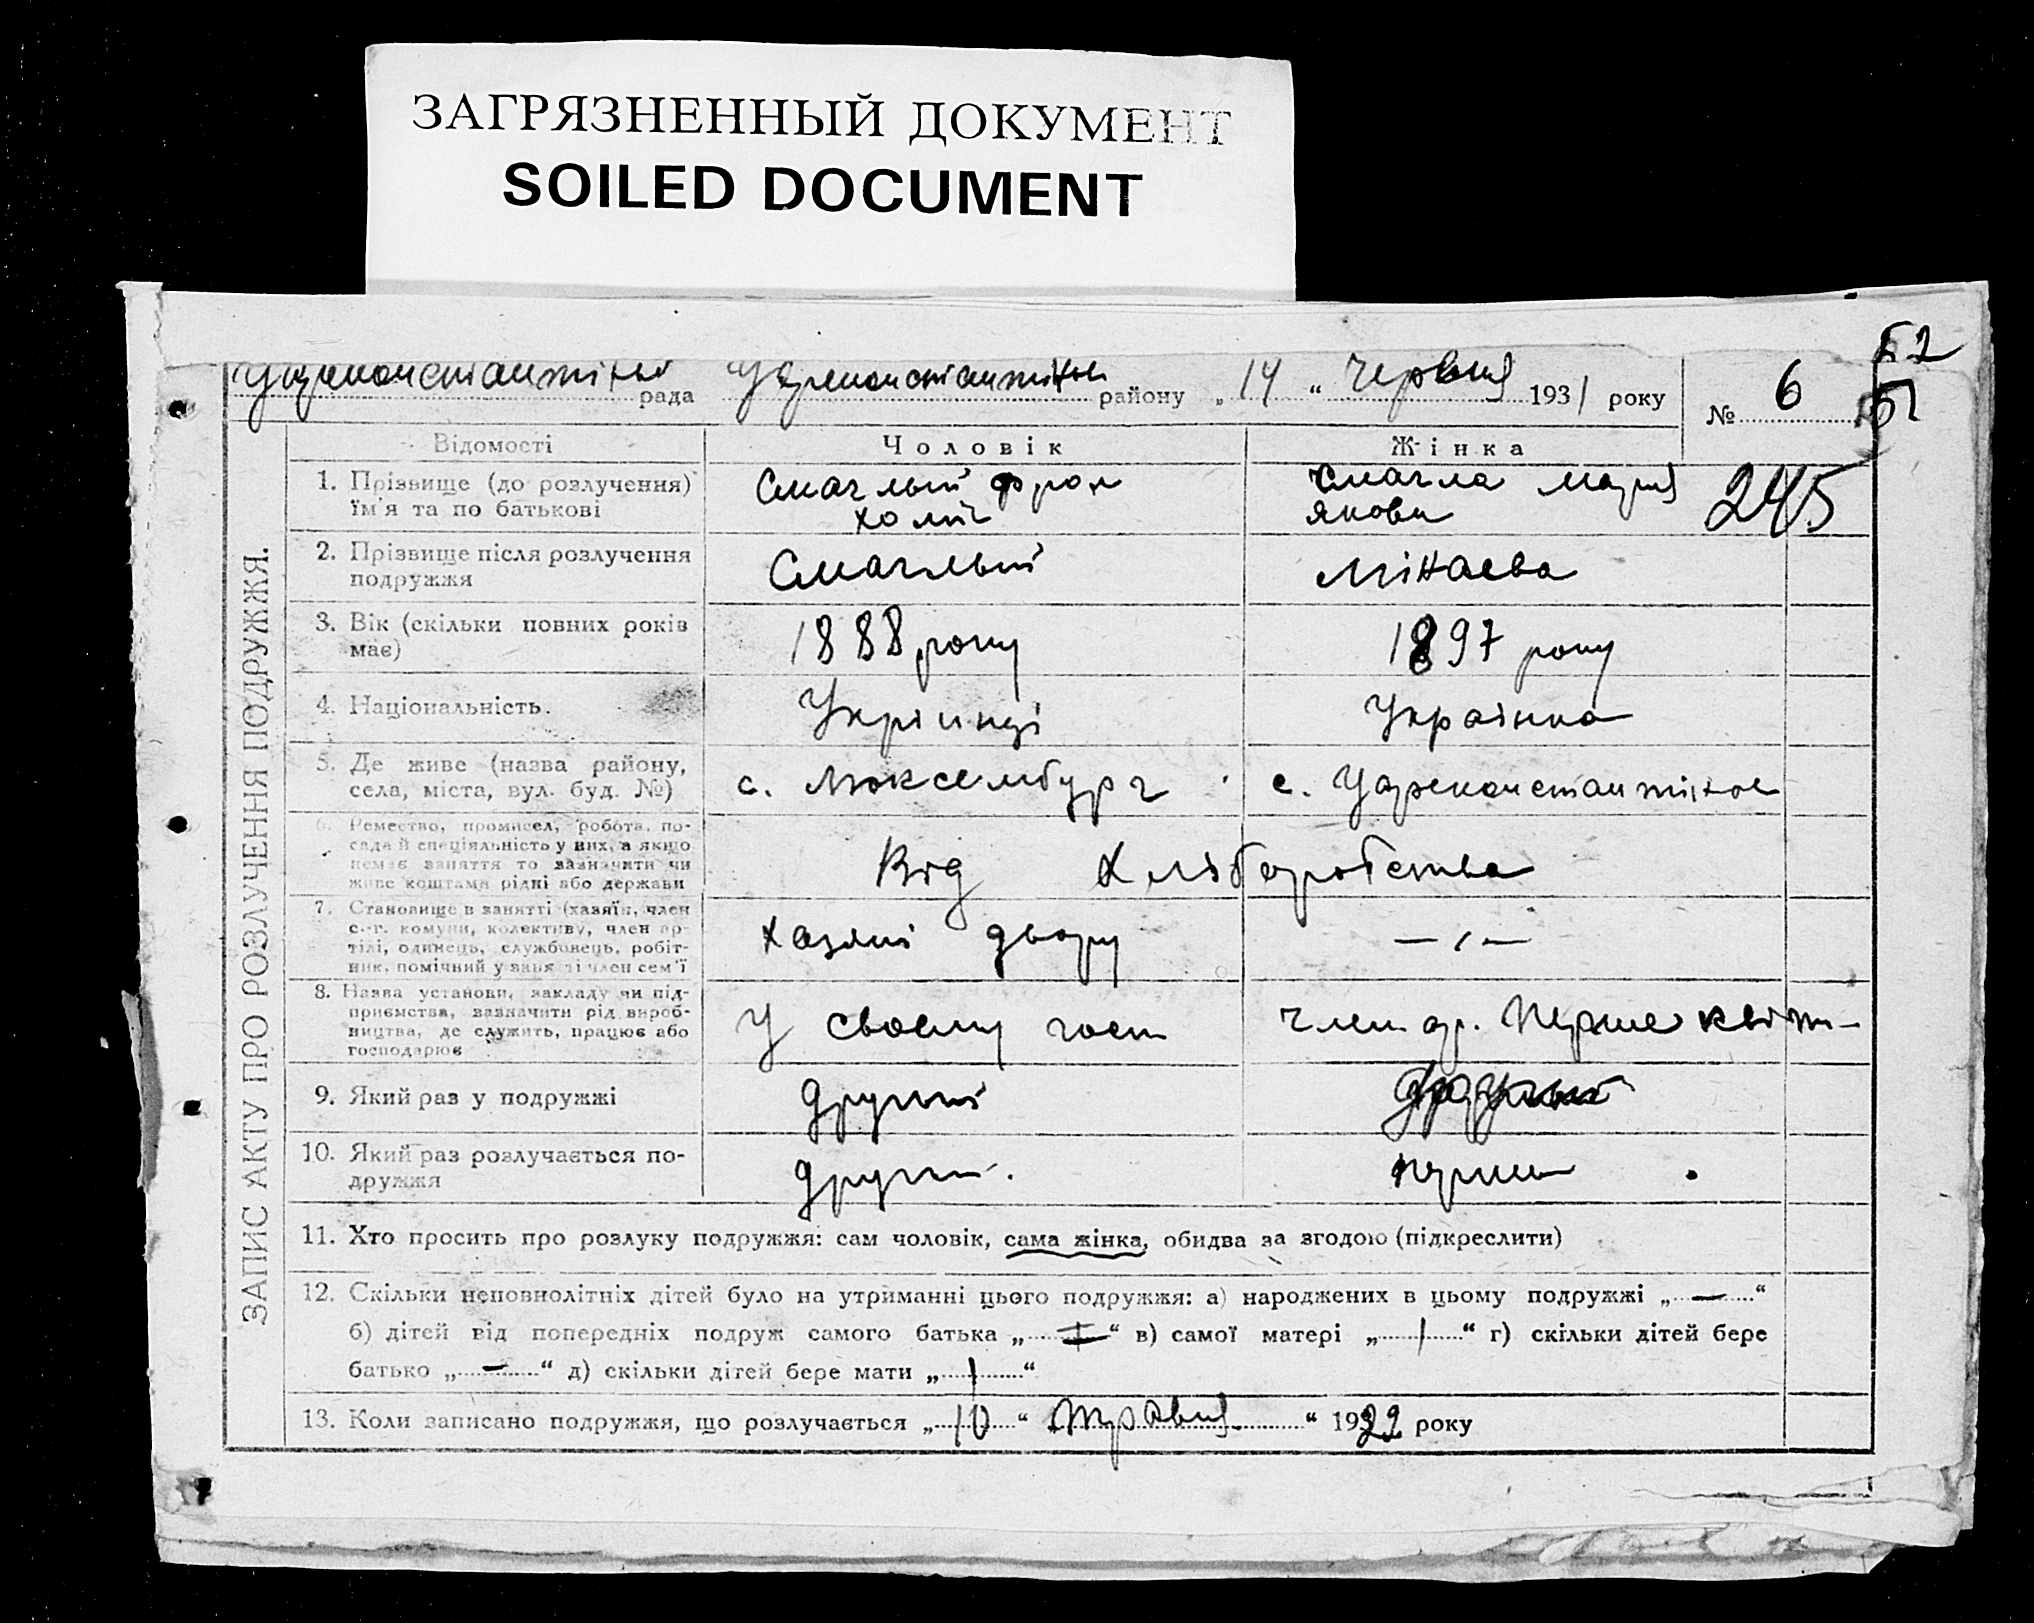 ЗАГРЯЗНЕННЫЙ ДОКУМЕНТ
SOILED DOCUMENT
52
рада району „14“ Червня 1931 року № 6 51
Відомості Чоловік Жінка
245
1. Прізвище (до розлучення) їм'я та по батькові
Смаглый
Смагла Марія
Якови
2. Прізвище після розлучення подружжя
Смаглый
Мінаева
3. Вік (скільки повних років має)
1888 року
1897 року
4. Національність.
Украінка
5. Де живе (назва району, села, міста, вул. буд. №)
с. Люксембург
с. Цареконстантиное
6. Ремество, промисел, робота, посада й спеціяльність у них, а якщо немає заняття то зазначити чи живе коштами рідні або держави
Від Хліборобства
7. Становище в занятті (хазяїн, член с.-г. комуни, колективу, член артілі, одинець, службовець, робітник, помічний у занятті член сем'ї
хазяіі двору
— ׳ —
8. Назва установи, закладу чи підприємства, зазначити рід виробництва, де служить, працює або господарює
У своему госп
член ар. Перше квіт-
9. Який раз у подружжі
другий
10. Який раз розлучається подружжя
другий.
перший
11. Хто просить про розлуку подружжя: сам чоловік, сама жінка, обидва за згодою (підкреслити)
12. Скільки неповнолітніх дітей було на утриманні цього подружжя: а) народжених в цьому подружжі „—“
б) дітей від попередніх подруж самого батька „—“ в) самої матері „1“ г) скільки дітей бере
батько „—“ д) скільки дітей бере мати „1“
13. Коли записано подружжя, що розлучається „10“ „Травня“ 1922 року
ЗАПИС АКТУ ПРО РОЗЛУЧЕННЯ ПОДРУЖЖЯ.